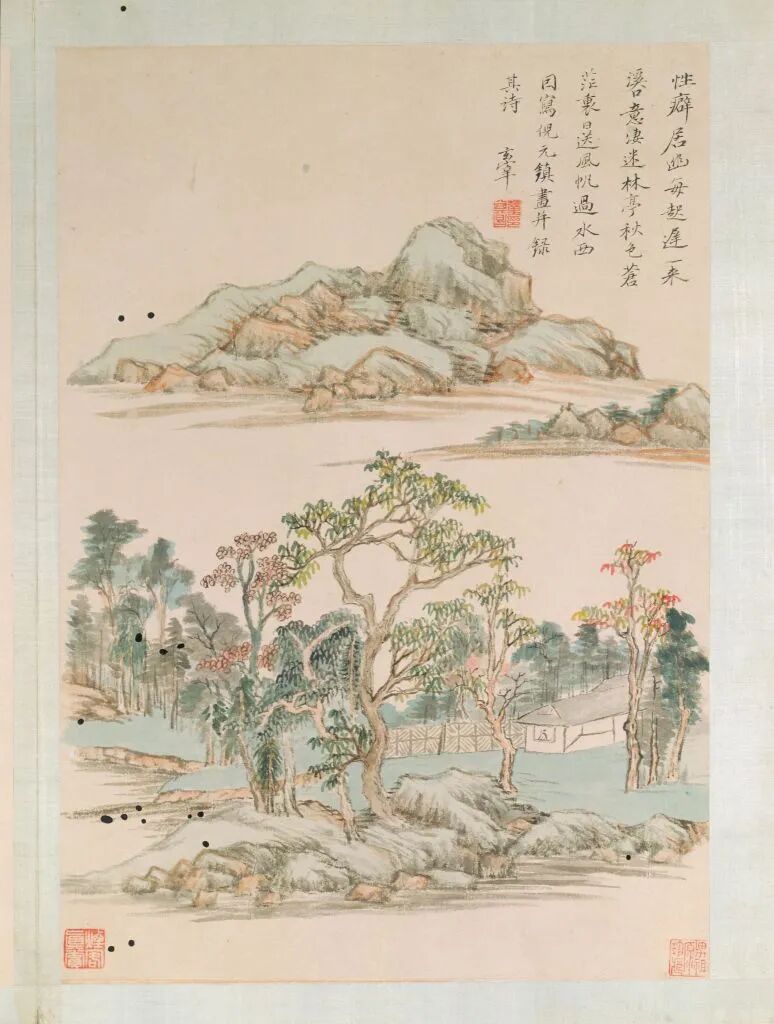 性癖居幽每起遲一来
溪口意凄迷林亭秋色蒼
茫裏目送風帆過水西
因寫倪元鎮畫并録
其诗 玄宰